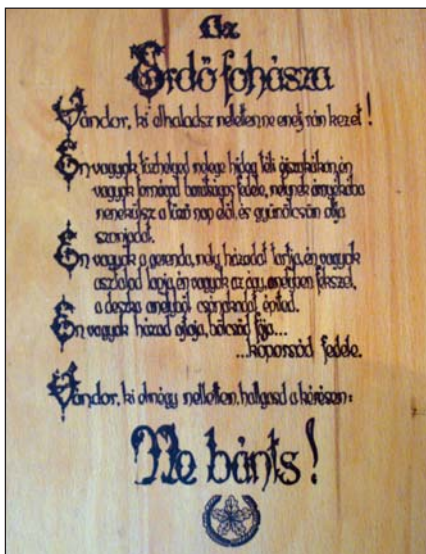 Az
Erdő fohásza
Vándor, ki elhaladsz mellettem ne emelj rám kezet!
Én vagyok tűzhelyed melege hideg téli éjszakákon, én
vagyok tornácod barátságos fedele, melynek árnyékába
menekülsz a tűző nap elől, és gyümölcsöm oltja
szomjadat.
Én vagyok a gerenda, mely házadat tartja, én vagyok
asztalod lapja, én vagyok az ágy, amelyben fekszel,
a deszka amelyből csónakodat építed.
Én vagyok házad ajtaja, bölcsőd fája...
...koporsód fedele.
Vándor, ki elmégy mellettem, hallgasd a kérésem:
Ne bánts!